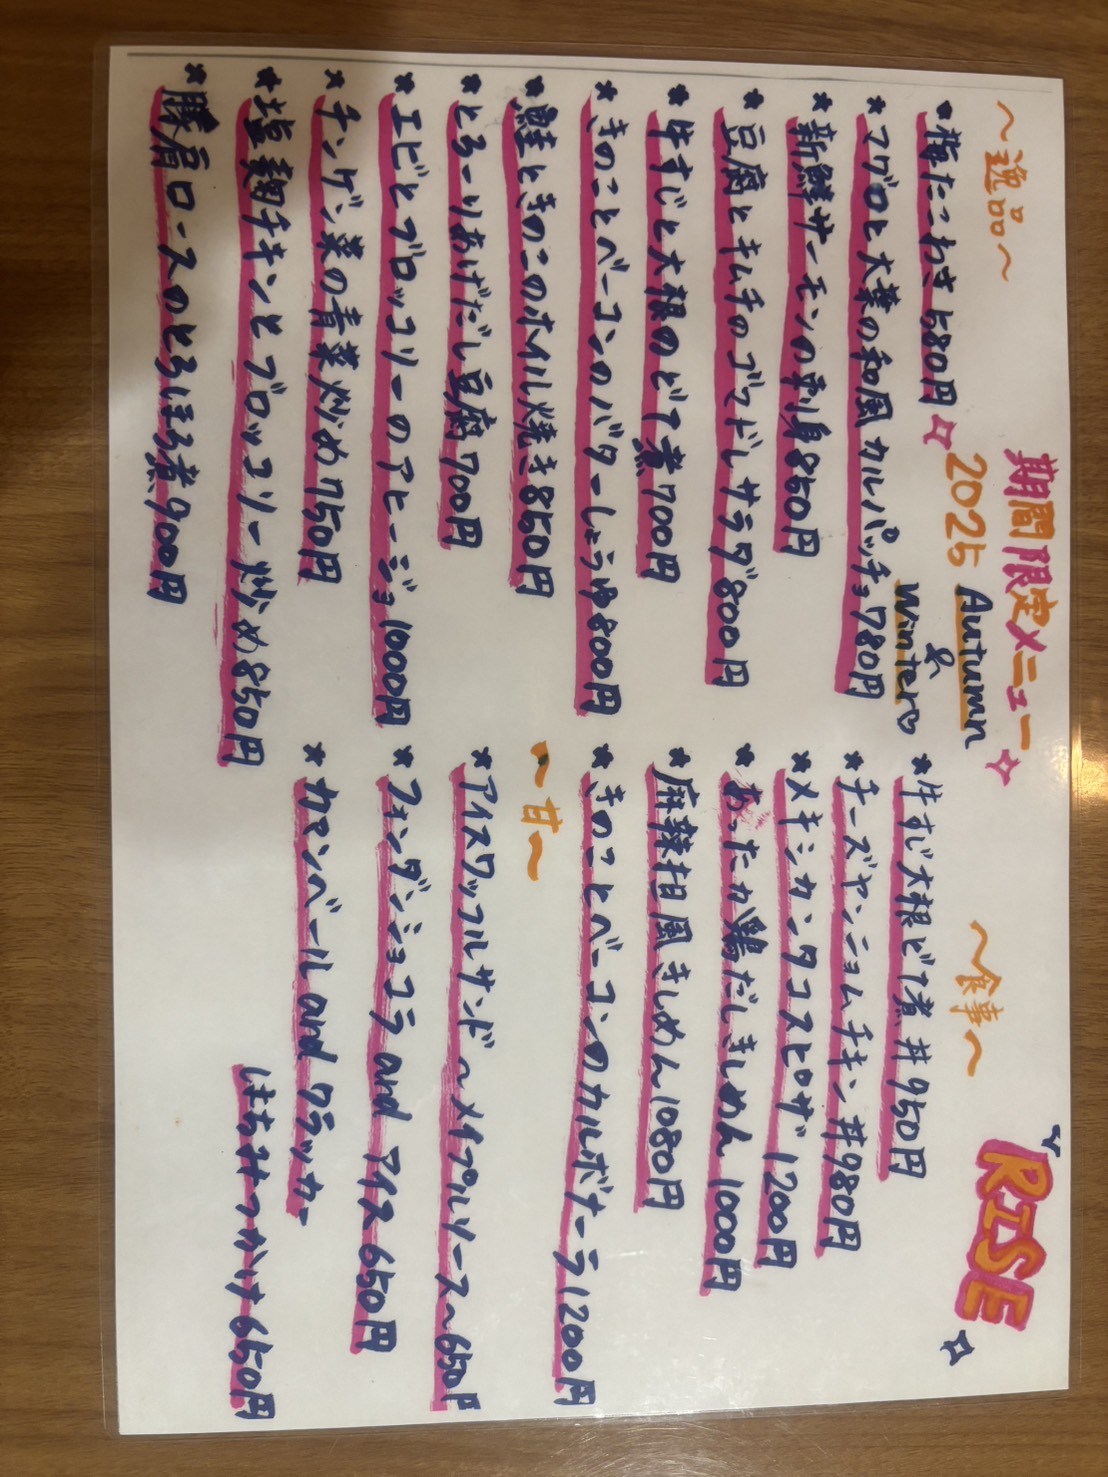 期間限定メニュー
2025 Autumn
&
Winter♡
RISE
〜逸品〜
*梅たこわさ580円
*マグロと大葉の和風カルパッチョ780円
*新鮮サーモンの刺身850円
*豆腐とキムチのゴマドレサラダ800円
*牛すじと大根のどて煮700円
*きのことベーコンのバターしょうゆ800円
*鮭ときのこのホイル焼き850円
*とろーりあげだし豆腐700円
*エビとブロッコリーのアヒージョ1000円
*チンゲン菜の青菜炒め750円
*塩麹チキンとブロッコリー炒め850円
*豚肩ロースのとろほろ煮900円
〜食事〜
*牛すじ大根どて煮丼950円
*チーズヤンニョムチキン丼980円
*メキシカンタコスピザ1200円
*あったか鶏だしきしめん1000円
*麻辣担風きしめん1080円
*きのことベーコンのカルボナーラ1200円
〜甘〜
*アイスワッフルサンド〜メイプルソース〜650円
*フォンダンショコラandアイス650円
*カマンベールandクラッカー
はちみつがけ650円